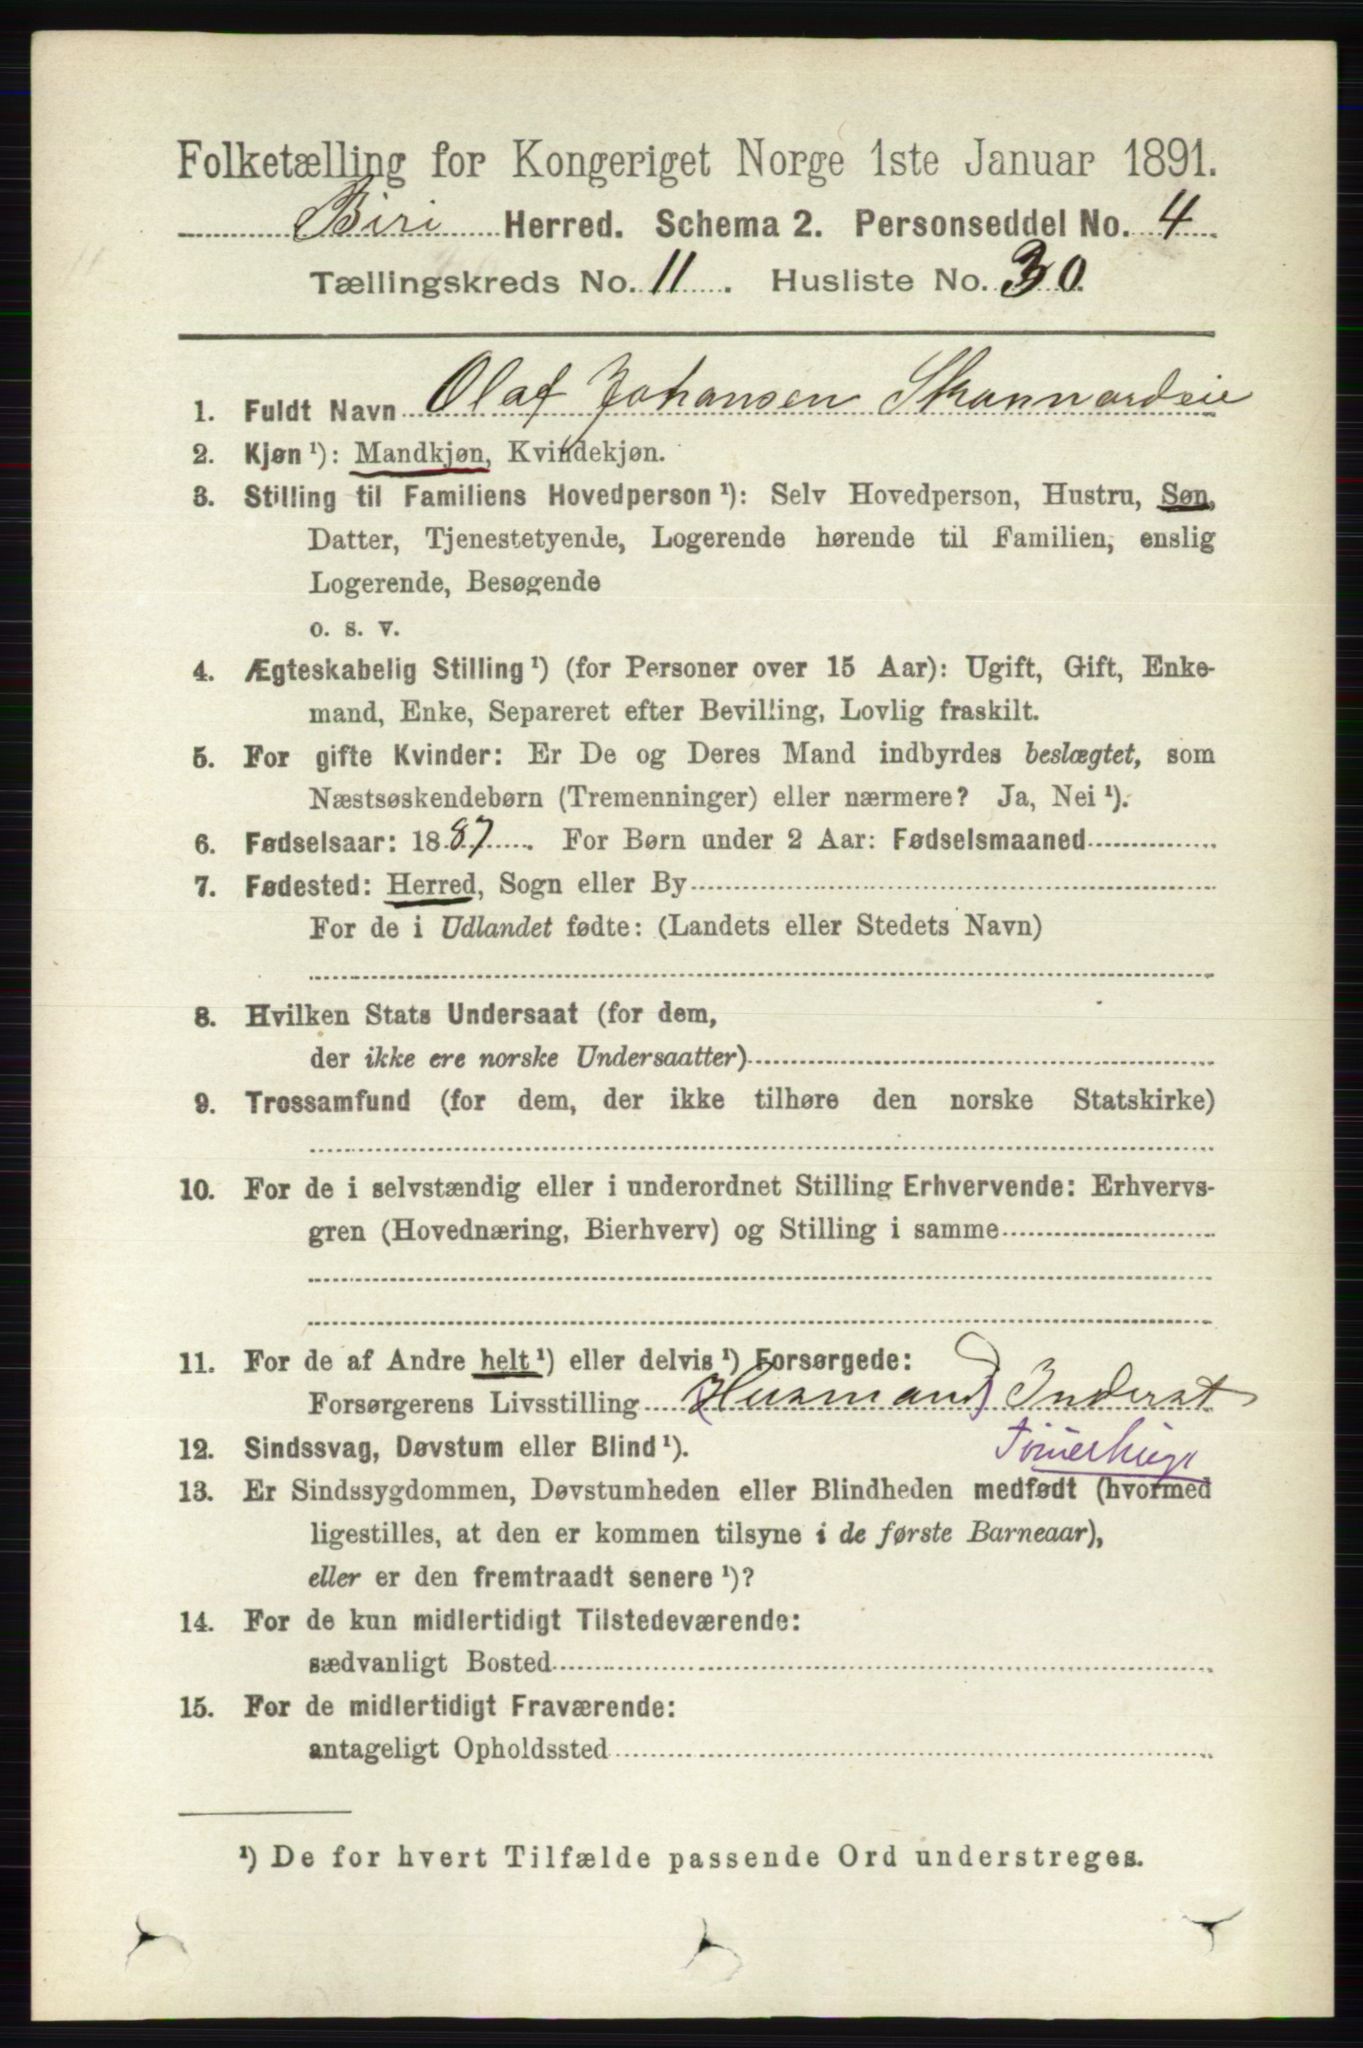 Folketælling for Kongeriget Norge 1ste Januar 1891.
Biri Herred. Schema 2. Personseddel No. 4
Tællingskreds No. 11. Husliste No. 30
1. Fuldt Navn Olaf Johansen
2. Kjøn ¹): Mandkjøn, Kvindekjøn.
3. Stilling til Familiens Hovedperson ¹): Selv Hovedperson, Hustru, Søn,
Datter, Tjenestetyende, Logerende hørende til Familien, enslig
Logerende, Besøgende
o. s. v.
4. Ægteskabelig Stilling ¹) (for Personer over 15 Aar): Ugift, Gift, Enke-
mand, Enke, Separeret efter Bevilling, Lovlig fraskilt.
5. For gifte Kvinder: Er De og Deres Mand indbyrdes beslægtet, som
Næstsøskendebørn (Tremenninger) eller nærmere? Ja, Nei ¹).
6. Fødselsaar: 1887. For Børn under 2 Aar: Fødselsmaaned
7. Fødested: Herred, Sogn eller By
For de i Udlandet fødte: (Landets eller Stedets Navn)
8. Hvilken Stats Undersaat (for dem,
der ikke ere norske Undersaatter)
9. Trossamfund (for dem, der ikke tilhøre den norske Statskirke)
10. For de i selvstændig eller i underordnet Stilling Erhvervende: Erhvervs-
gren (Hovednæring, Bierhverv) og Stilling i samme
11. For de af Andre helt ¹) eller delvis ¹) Forsørgede:
Forsørgerens Livsstilling (Husmand) Inderst
12. Sindssvag, Døvstum eller Blind ¹).
13. Er Sindssygdommen, Døvstumheden eller Blindheden medfødt (hvormed
ligestilles, at den er kommen tilsyne i de første Barneaar),
eller er den fremtraadt senere ¹)?
14. For de kun midlertidigt Tilstedeværende:
sædvanligt Bosted
15. For de midlertidigt Fraværende:
antageligt Opholdssted
¹) De for hvert Tilfælde passende Ord understreges.